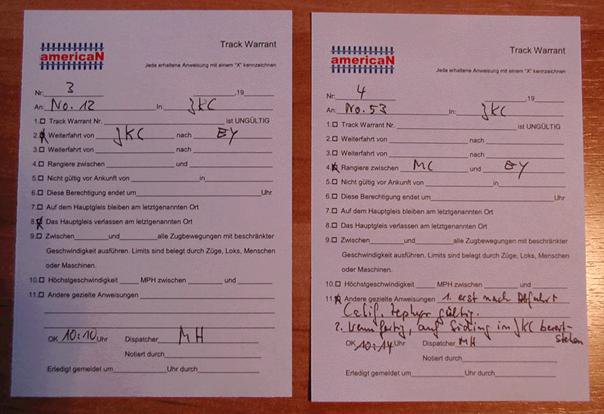 americaN
Track Warrant
Jede erhaltene Anweisung mit einem "X" kennzeichnen
Nr. 3 ,19
An: No. 12 In: JKC
1. Track Warrant Nr. ist UNGÜLTIG
2. X Weiterfahrt von JKC nach EY
3. Weiterfahrt von nach
4. Rangiere zwischen und
5. Nicht gültig vor Ankunft von in
6. Diese Berechtigung endet um Uhr
7. Auf dem Hauptgleis bleiben am letztgenannten Ort
8. X Das Hauptgleis verlassen am letztgenannten Ort
9. Zwischen und alle Zugbewegungen mit beschränkter
Geschwindigkeit ausführen. Limits sind belegt durch Züge, Loks, Menschen
oder Maschinen.
10. Höchstgeschwindigkeit MPH zwischen und
11. Andere gezielte Anweisungen
OK 10:10 Uhr Dispatcher MH
Notiert durch
Erledigt gemeldet um Uhr durch
americaN
Track Warrant
Jede erhaltene Anweisung mit einem "X" kennzeichnen
Nr. 4 ,19
An: No. 53 In: JKC
1. Track Warrant Nr. ist UNGÜLTIG
2. Weiterfahrt von nach
3. Weiterfahrt von nach
4. X Rangiere zwischen MC und EY
5. Nicht gültig vor Ankunft von in
6. Diese Berechtigung endet um Uhr
7. Auf dem Hauptgleis bleiben am letztgenannten Ort
8. Das Hauptgleis verlassen am letztgenannten Ort
9. Zwischen und alle Zugbewegungen mit beschränkter
Geschwindigkeit ausführen. Limits sind belegt durch Züge, Loks, Menschen
oder Maschinen.
10. Höchstgeschwindigkeit MPH zwischen und
11. X Andere gezielte Anweisungen 1. erst nach Abfahrt
Calif. Zephyr gültig.
2. Wenn fertig, auf Siding in JKC bereit-
stehen
OK 10:14 Uhr Dispatcher MH
Notiert durch
Erledigt gemeldet um Uhr durch